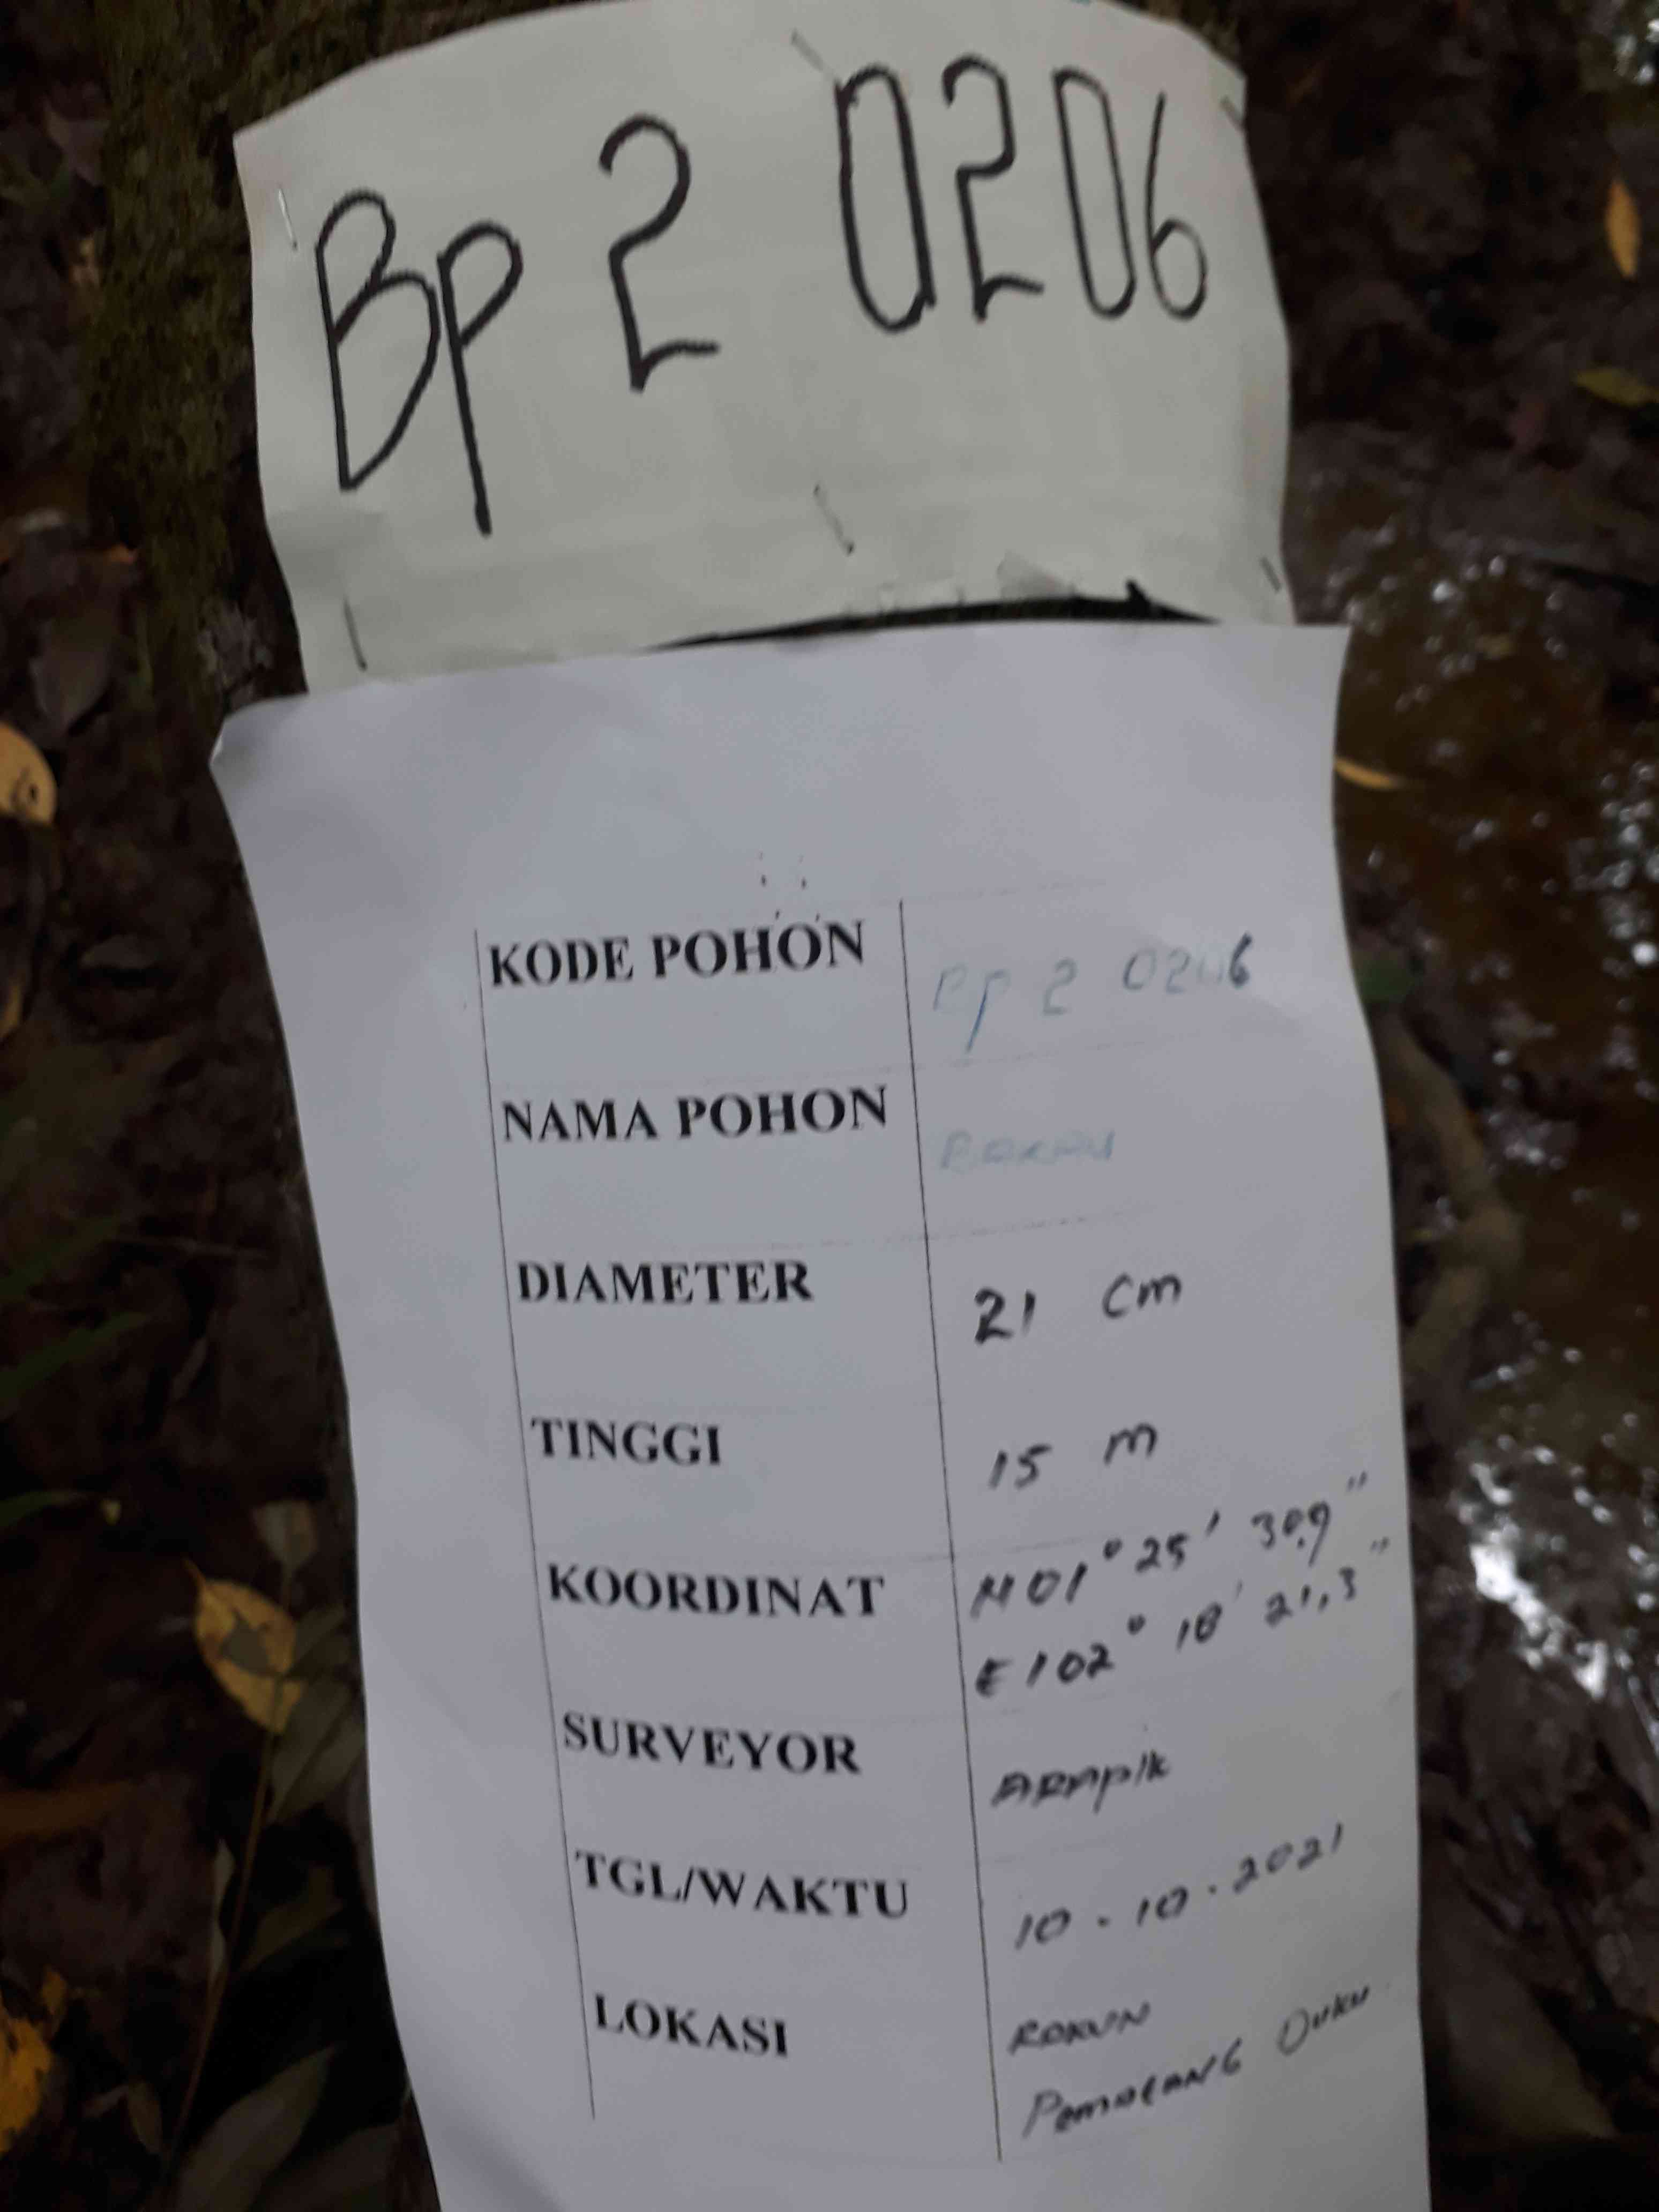 Bp 2 0206
KODE POHON Bp 2 0206
NAMA POHON Bakau
DIAMETER 21 cm
TINGGI 15 m
KOORDINAT N 01° 25' 30.9"
E 102° 18' 21,3"
SURVEYOR
TGL/WAKTU 10 - 10 - 2021
LOKASI
Duku